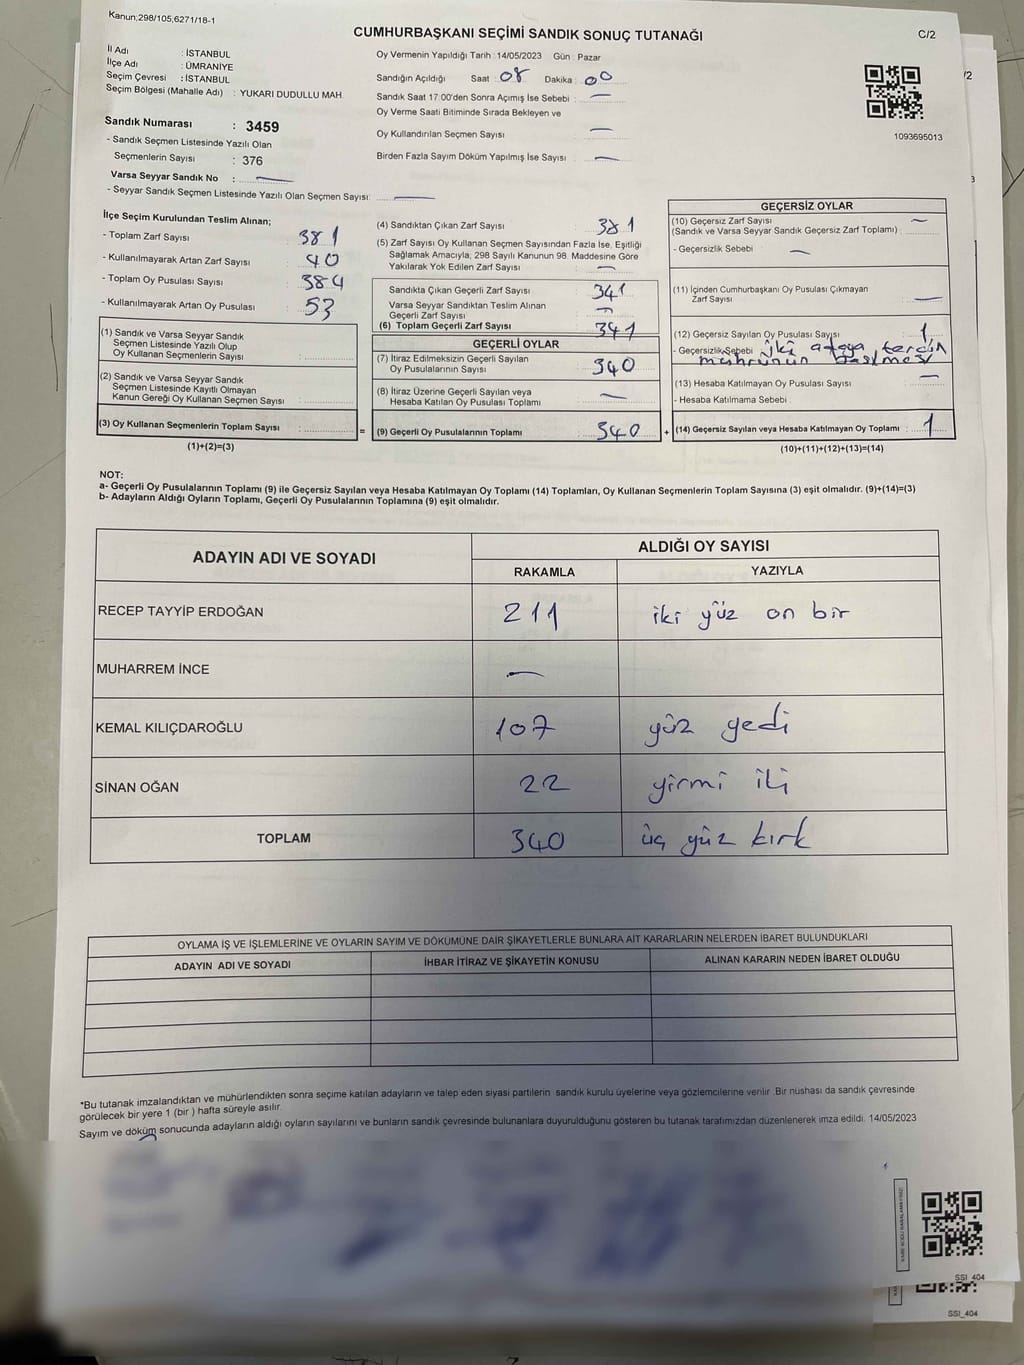 Kanun;298/105,6271/18-1
CUMHURBAŞKANI SEÇİMİ SANDIK SONUÇ TUTANAĞI
C/2
/2
İl Adı : İSTANBUL
İlçe Adı : ÜMRANİYE
Seçim Çevresi : İSTANBUL
Seçim Bölgesi (Mahalle Adı) : YUKARI DUDULLU MAH.
Oy Vermenin Yapıldığı Tarih :14/05/2023 Gün : Pazar
Sandığın Açıldığı Saat : 08 Dakika : 00
Sandık Saat 17:00'den Sonra Açımış İse Sebebi : —
Oy Verme Saati Bitiminde Sırada Bekleyen ve
Oy Kullandırılan Seçmen Sayısı —
Birden Fazla Sayım Döküm Yapılmış İse Sayısı —
1093695013
Sandık Numarası : 3459
- Sandık Seçmen Listesinde Yazılı Olan
Seçmenlerin Sayısı : 376
Varsa Seyyar Sandık No : —
- Seyyar Sandık Seçmen Listesinde Yazılı Olan Seçmen Sayısı: —
İlçe Seçim Kurulundan Teslim Alınan;
- Toplam Zarf Sayısı 381
- Kullanılmayarak Artan Zarf Sayısı 40
- Toplam Oy Pusulası Sayısı 384
- Kullanılmayarak Artan Oy Pusulası 53
(1) Sandık ve Varsa Seyyar Sandık
Seçmen Listesinde Yazılı Olup
Oy Kullanan Seçmenlerin Sayısı
(2) Sandık ve Varsa Seyyar Sandık
Seçmen Listesinde Kayıtlı Olmayan
Kanun Gereği Oy Kullanan Seçmen Sayısı
(3) Oy Kullanan Seçmenlerin Toplam Sayısı =
(1)+(2)=(3)
(4) Sandıktan Çıkan Zarf Sayısı 381
(5) Zarf Sayısı Oy Kullanan Seçmen Sayısından Fazla İse, Eşitliği
Sağlamak Amacıyla; 298 Sayılı Kanunun 98. Maddesine Göre
Yakılarak Yok Edilen Zarf Sayısı —
Sandıkta Çıkan Geçerli Zarf Sayısı 341
Varsa Seyyar Sandıktan Teslim Alınan
Geçerli Zarf Sayısı —
(6) Toplam Geçerli Zarf Sayısı 341
GEÇERLİ OYLAR
(7) İtiraz Edilmeksizin Geçerli Sayılan
Oy Pusulalarının Sayısı 340
(8) İtiraz Üzerine Geçerli Sayılan veya
Hesaba Katılan Oy Pusulası Toplamı —
(9) Geçerli Oy Pusulalarının Toplamı 340 +
GEÇERSİZ OYLAR
(10) Geçersiz Zarf Sayısı —
(Sandık ve Varsa Seyyar Sandık Geçersiz Zarf Toplamı)
- Geçersizlik Sebebi —
(11) İçinden Cumhurbaşkanı Oy Pusulası Çıkmayan
Zarf Sayısı —
(12) Geçersiz Sayılan Oy Pusulası Sayısı 1
- Geçersizlik Sebebi iki adaya tercih
mührünün basılması
(13) Hesaba Katılmayan Oy Pusulası Sayısı —
- Hesaba Katılmama Sebebi
(14) Geçersiz Sayılan veya Hesaba Katılmayan Oy Toplamı 1
(10)+(11)+(12)+(13)=(14)
NOT:
a- Geçerli Oy Pusulalarının Toplamı (9) ile Geçersiz Sayılan veya Hesaba Katılmayan Oy Toplamı (14) Toplamları, Oy Kullanan Seçmenlerin Toplam Sayısına (3) eşit olmalıdır. (9)+(14)=(3)
b- Adayların Aldığı Oyların Toplamı, Geçerli Oy Pusulalarının Toplamına (9) eşit olmalıdır.
ADAYIN ADI VE SOYADI
ALDIĞI OY SAYISI
RAKAMLA YAZIYLA
RECEP TAYYİP ERDOĞAN 211 iki yüz on bir
MUHARREM İNCE —
KEMAL KILIÇDAROĞLU 107 yüz yedi
SİNAN OĞAN 22 yirmi iki
TOPLAM 340 üç yüz kırk
OYLAMA İŞ VE İŞLEMLERİNE VE OYLARIN SAYIM VE DÖKÜMÜNE DAİR ŞİKAYETLERLE BUNLARA AİT KARARLARIN NELERDEN İBARET BULUNDUKLARI
ADAYIN ADI VE SOYADI İHBAR İTİRAZ VE ŞİKAYETİN KONUSU ALINAN KARARIN NEDEN İBARET OLDUĞU
*Bu tutanak imzalandıktan ve mühürlendikten sonra seçime katılan adayların ve talep eden siyasi partilerin sandık kurulu üyelerine veya gözlemcilerine verilir .Bir nüshası da sandık çevresinde
görülecek bir yere 1 (bir ) hafta süreyle asılır.
Sayım ve döküm sonucunda adayların aldığı oyların sayılarını ve bunların sandık çevresinde bulunanlara duyurulduğunu gösteren bu tutanak tarafımızdan düzenlenerek imza edildi. 14/05/2023
SSI_404
SSI_404